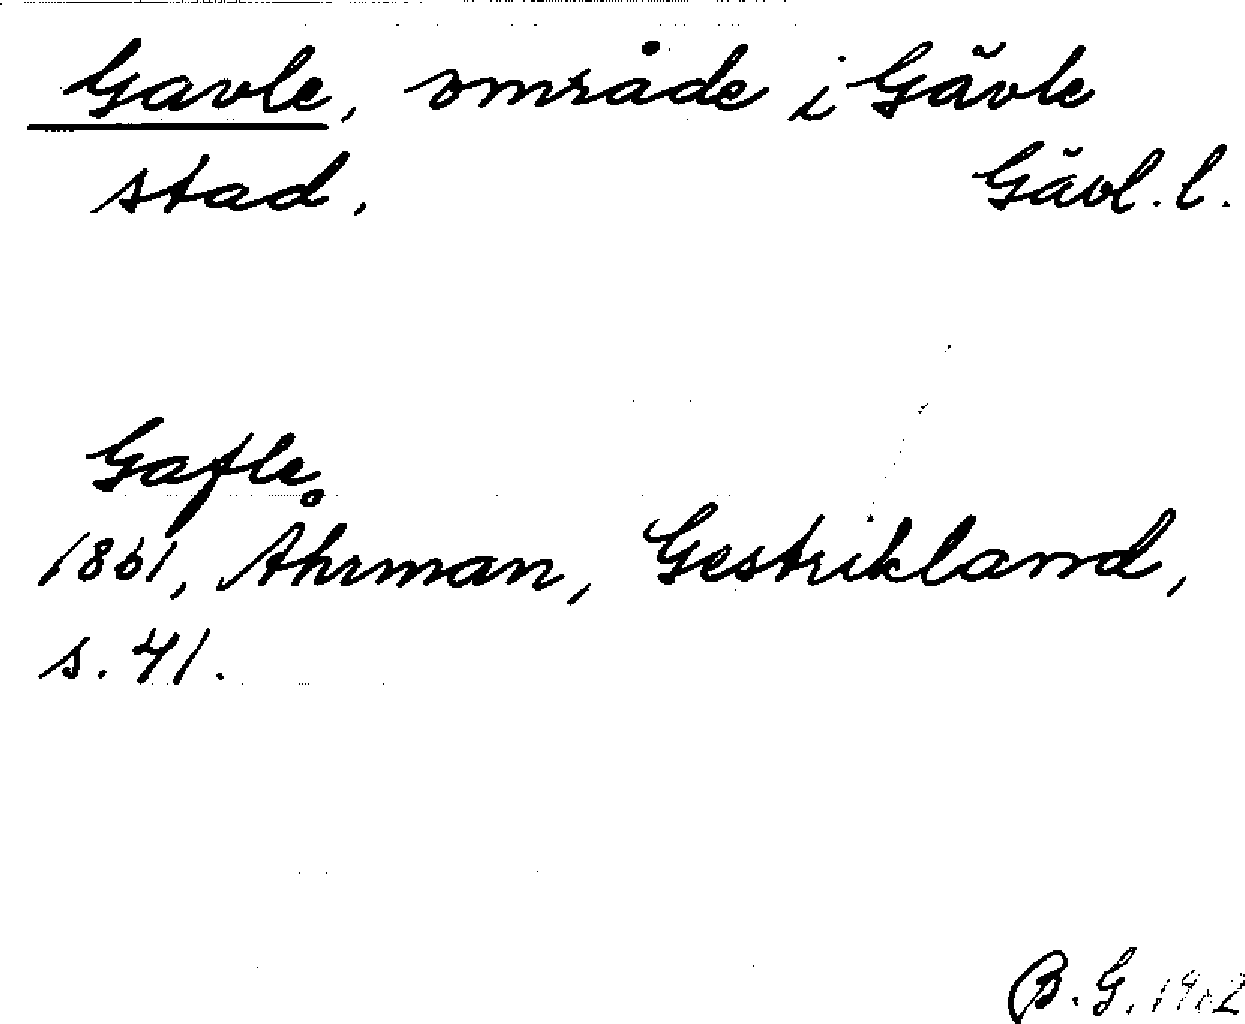 Gavle, område i Gävle
stad. Gävl. l.
Gafle.
1861, Åhrman, Gestrikland,
s. 41.
B. G.